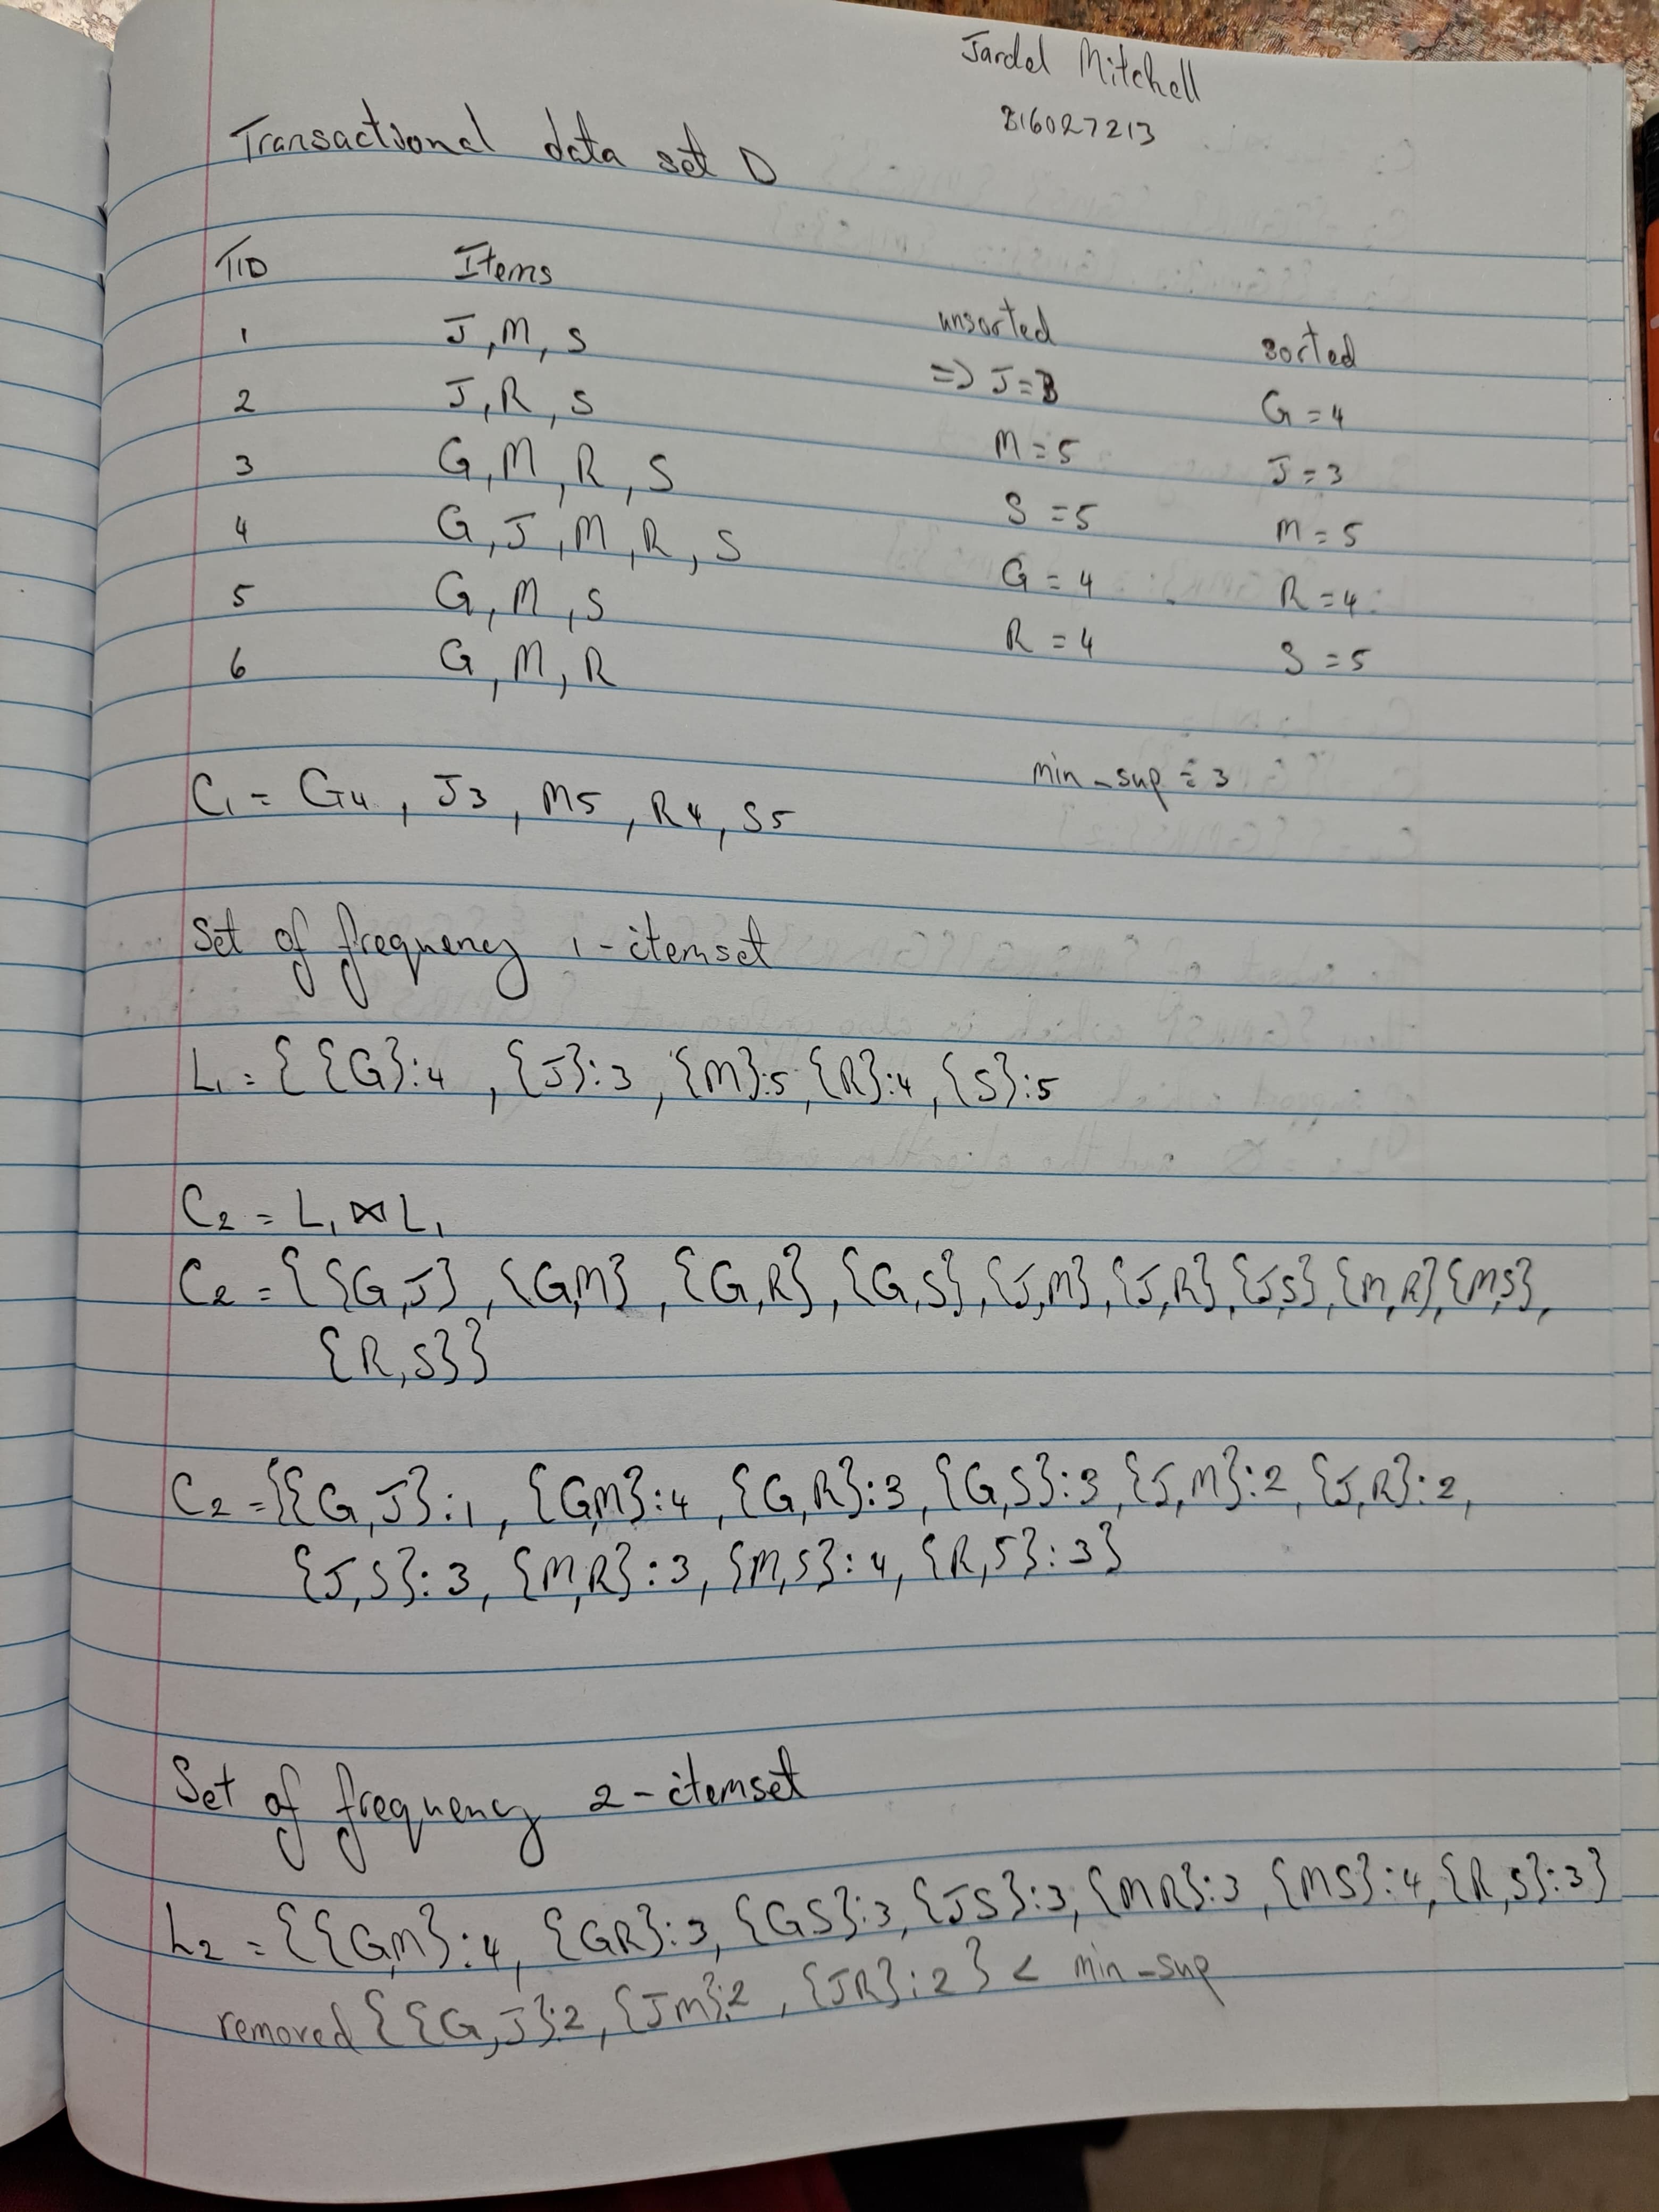 Jardel Mitchell
816027213
Transactional data set D
TID Items
unsorted sorted
1 J, M, S => J = 3 G = 4
2 J, R, S M = 5 J = 3
3 G, M, R, S S = 5 M = 5
4 G, J, M, R, S G = 4 R = 4
5 G, M, S R = 4 S = 5
6 G, M, R
min_sup = 3
C₁ = G4, J3, M5, R4, S5
Set of frequency 1-itemset
L₁ = { {G}:4, {J}:3, {M}:5, {R}:4, {S}:5
C₂ = L₁ ⋈ L₁
C₂ = { {G,J}, {G,M}, {G,R}, {G,S}, {J,M}, {J,R}, {J,S}, {M,R}, {M,S},
{R,S}}
C₂ = {{G,J}:1, {G,M}:4, {G,R}:3, {G,S}:3, {J,M}:2, {J,R}:2,
{J,S}:3, {M,R}:3, {M,S}:4, {R,S}:3}
Set of frequency 2-itemset
L₂ = {{G,M}:4, {GR}:3, {GS}:3, {JS}:3, {MR}:3, {MS}:4, {R,S}:3}
removed {{G,J}:2, {JM}:2, {JR}:2} < min_sup